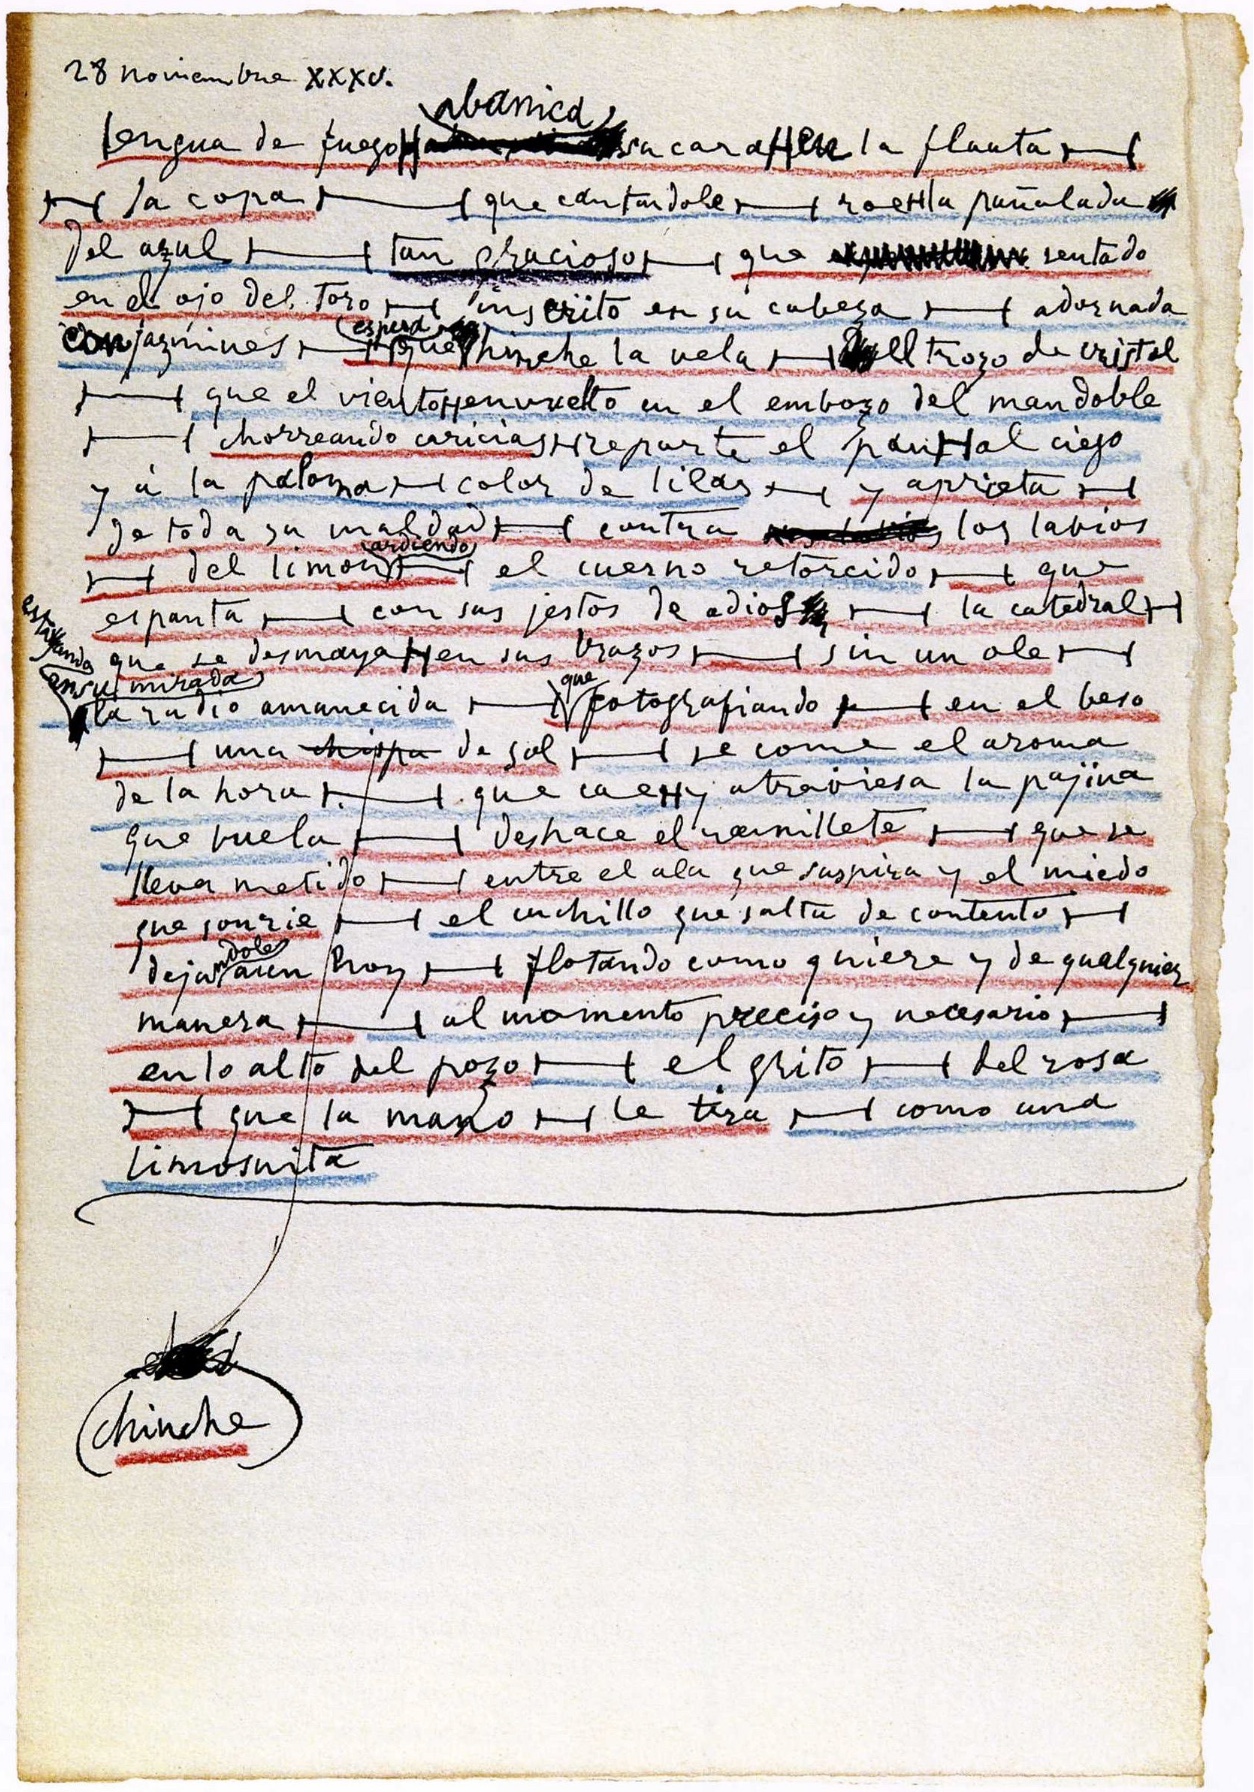 28 noviembre XXXV.
abanica
lengua de fuego su cara en la flauta
la copa que cantandole roe la puñalada
del azul tan gracioso que sentado
en el ojo del toro inscrito en su cabeza adornada
espera
con jazmines que hinche la vela el trozo de cristal
que el viento envuelto en el embozo del mandoble
chorreando caricias reparte el pan al ciego
y á la paloma color de lilas y aprieta
de toda su maldad contra los labios
ardiendo
del limon el cuerno retorcido que
espanta con sus jestos de adios la catedral
que se desmaya en sus brazos sin un ole
estallando
en su mirada
que
la radio amanecida fotografiando en el beso
una chispa de sol se come el aroma
de la hora que cae y atraviesa la pajina
que vuela deshace el ramillete que se
lleva metido entre el ala que suspira y el miedo
que sonrie el cuchillo que salta de contento
ndole
deja aun hoy flotando como quiere y de cualquier
manera al momento preciso y necesario
en lo alto del pozo el grito del rosa
que la mano le tira como una
limosnita
chinche